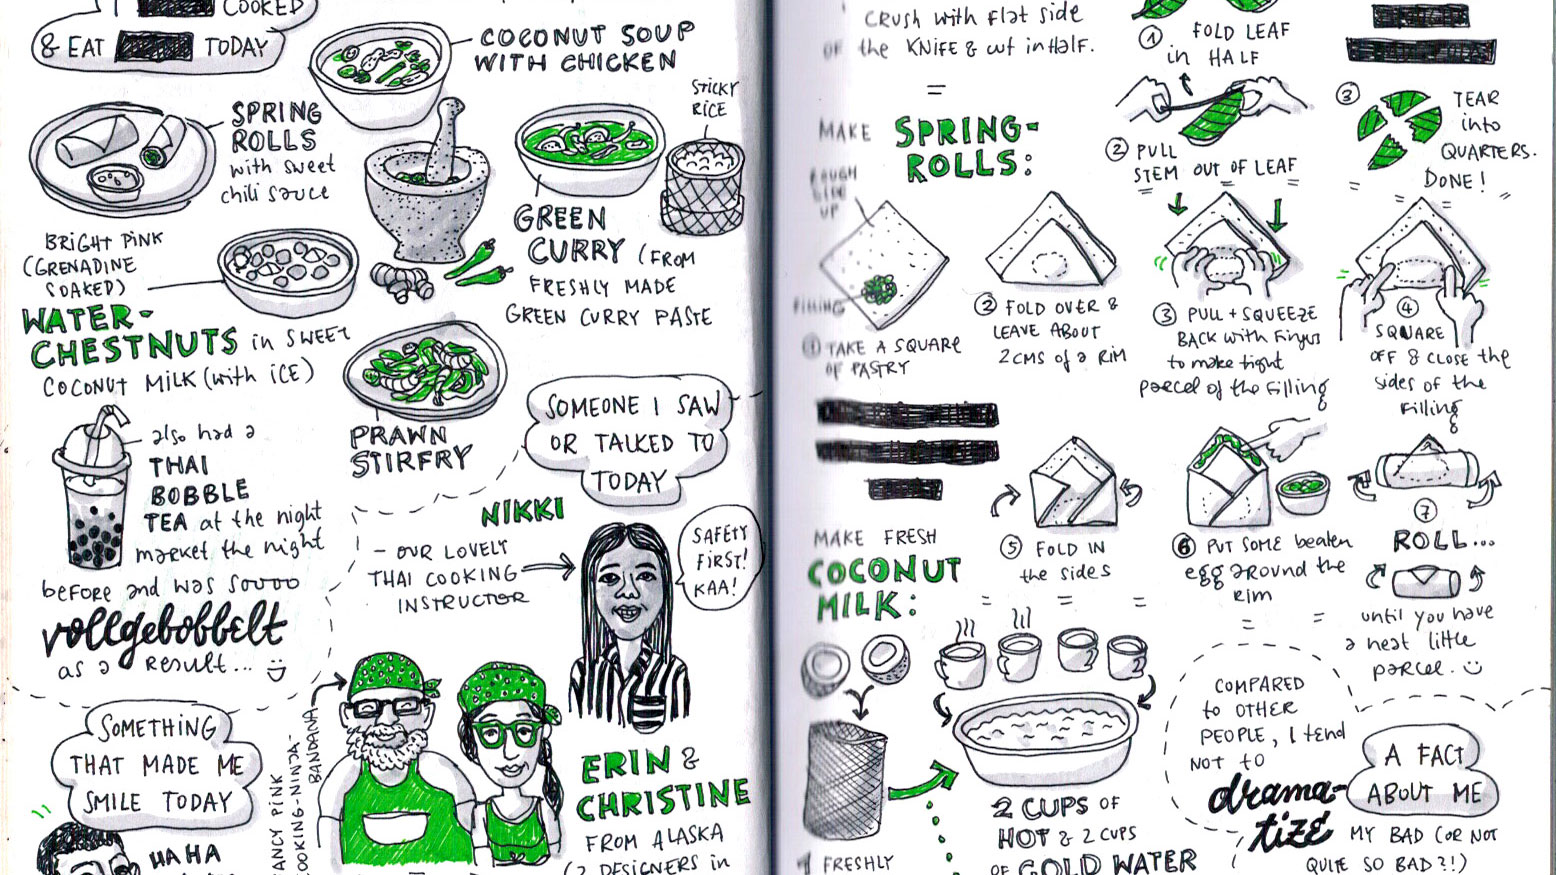 I COOKED
& EAT TODAY
COCONUT SOUP
WITH CHICKEN
STICKY
RICE
SPRING
ROLLS
with sweet
chili sauce
GREEN
CURRY (FROM
FRESHLY MADE
GREEN CURRY PASTE
BRIGHT PINK
(GRENADINE
SOAKED)
WATER-
CHESTNUTS in SWEET
COCONUT MILK (with ICE)
PRAWN
STIRFRY
also had a
THAI
BOBBLE
TEA at the night
market the night
before and was soooo
vollgebobbelt
as a result... :)
SOMEONE I SAW
OR TALKED TO
TODAY
NIKKI
- OUR LOVELY
THAI COOKING
INSTRUCTOR
SAFETY
FIRST!
KAA!
SOMETHING
THAT MADE ME
SMILE TODAY
HAHA
FANCY PINK
COOKING-NINJA-
BANDANA
ERIN &
CHRISTINE
FROM ALASKA
(2 DESIGNERS in
CRUSH with flat side
OF the KNIFE & cut in half.
=
MAKE SPRING-
ROLLS:
1 FOLD LEAF
in HALF
2 PULL
STEM OUT OF LEAF
3 TEAR
into
QUARTERS.
DONE!
ROUGH
SIDE
UP
FILLING
1 TAKE A SQUARE
OF PASTRY
2 FOLD OVER &
LEAVE ABOUT
2 CMS of a RIM
3 PULL + SQUEEZE
BACK with Fingers
to make tight
parcel of the Filling
4
SQUARE
OFF & CLOSE the
sides of the
Filling
5 FOLD IN
the sides
6 PUT SOME beaten
egg around the
rim
7
ROLL...
until you have
a neat little
parcel. :)
MAKE FRESH
COCONUT
MILK:
1 FRESHLY
2 CUPS OF
HOT & 2 CUPS
OF COLD WATER
COMPARED
to OTHER
PEOPLE, I tend
NOT to
drama-
tize
A FACT
ABOUT ME
MY BAD (OR NOT
QUITE SO BAD?!)